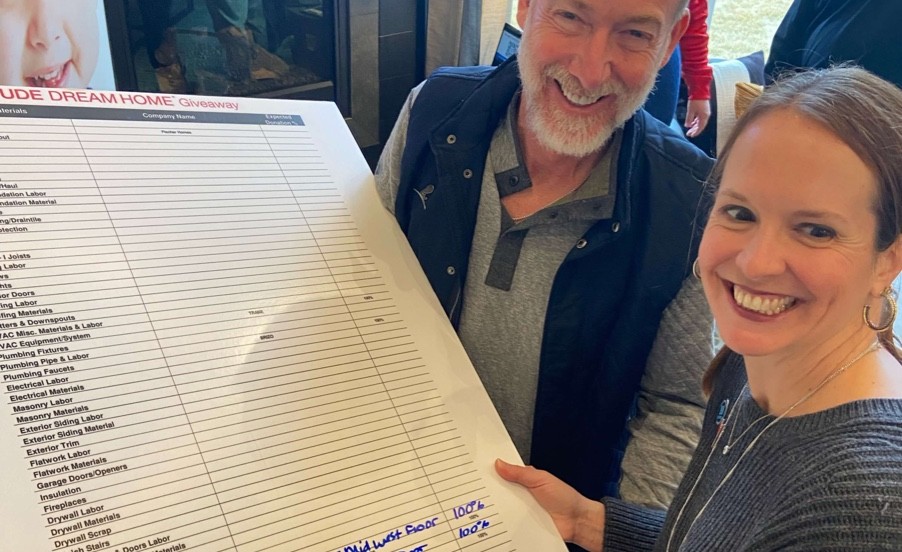 UDE DREAM HOME Giveaway
aterials Company Name Expected Donation %
out Fischer Homes
/Haul
ndation Labor
ndation Material
ng/Draintile
otection
- I Joists
g Labor
ws
hts
or Doors
fing Labor
fing Materials
tters & Downspouts
VAC Misc. Materials & Labor
VAC Equipment/System TRANE 100%
Plumbing Fixtures
Plumbing Pipe & Labor BRIZO 100%
Plumbing Faucets
Electrical Labor
Electrical Materials
Masonry Labor
Masonry Materials
Exterior Siding Labor
Exterior Siding Material
Exterior Trim
Flatwork Labor
Flatwork Materials
Garage Doors/Openers
Insulation
Fireplaces
Drywall Labor
Drywall Materials
Drywall Scrap
ish Stairs
& Doors Labor Midwest Floor 100%
aterials 100%
100%